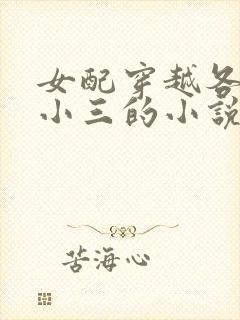 女配穿越各
小三的小說
苦海心